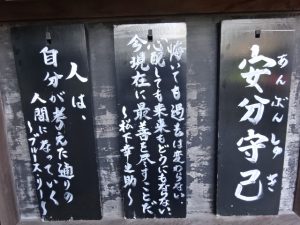 安分守己
あんぶんしゅき
悔いても過去は変わらない、
心配しても未来もどうにもならない、
今現在に最善を尽すことだ
～松下幸之助～
人は、
自分が考えた通りの
人間になっていく
～ブルース・リー～